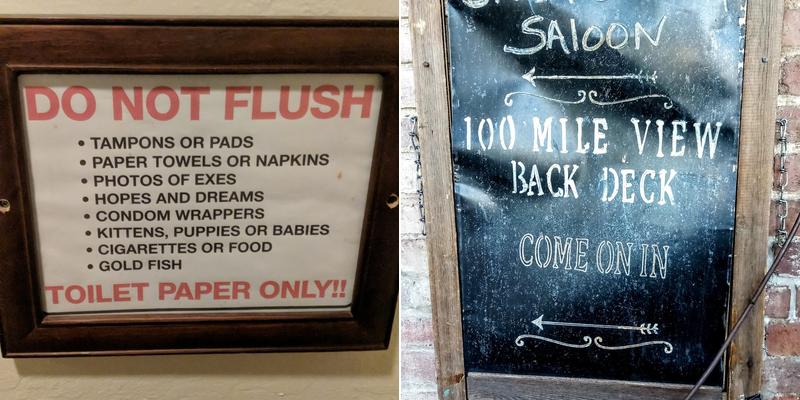 DO NOT FLUSH
• TAMPONS OR PADS
• PAPER TOWELS OR NAPKINS
• PHOTOS OF EXES
• HOPES AND DREAMS
• CONDOM WRAPPERS
• KITTENS, PUPPIES OR BABIES
• CIGARETTES OR FOOD
• GOLD FISH
TOILET PAPER ONLY!!
SALOON
100 MILE VIEW
BACK DECK
COME ON IN